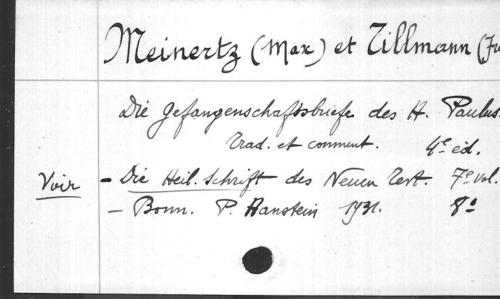 Meinertz (Max) et Tillmann (Fr
Die Gefangenschaftsbriefe des H. Paulus.
Trad. et comment. 4e éd.
Voir - Die Heil. Schrift des Neuen Test. 7e vol.
- Bonn. P. Hanstein 1931. 8°